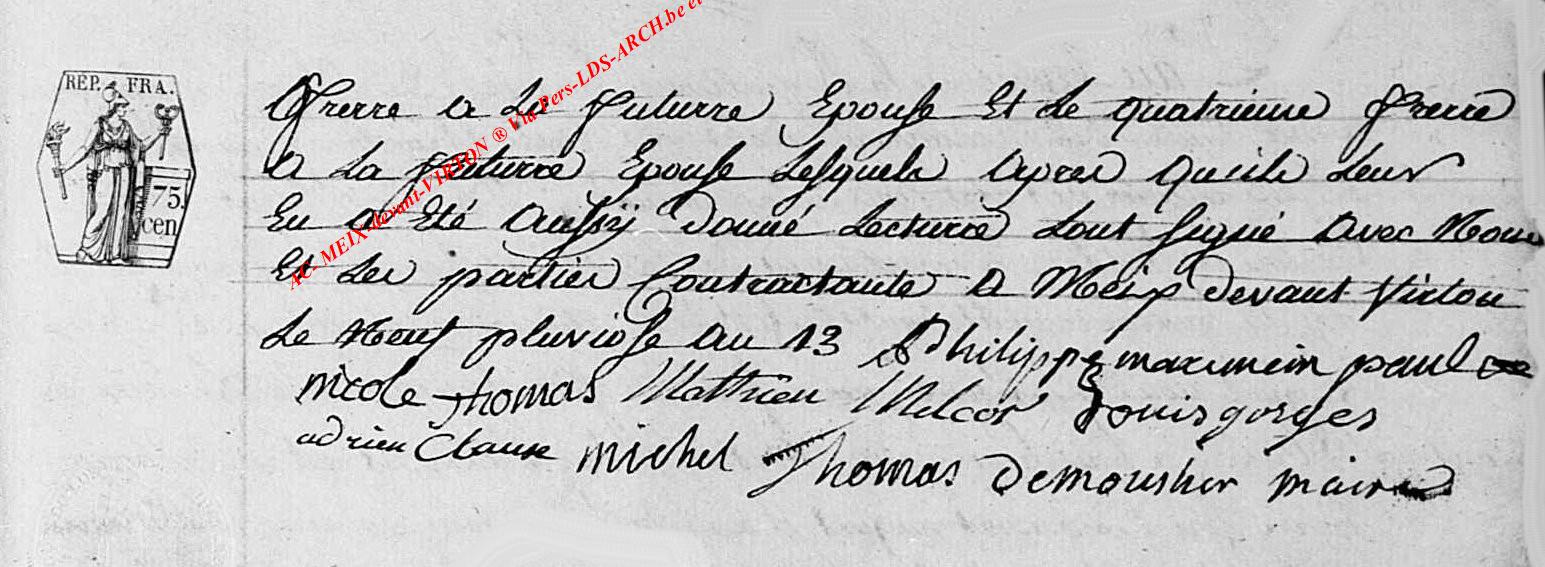 REP. FRA.
75.
cen
AC- MEIX-devant-VIRTON ® Via Pers-LDS-ARCH.be et
frerre a La futurre Epouse Et Le quatrieme frerre
a La futurre Epouse Lesquels apres qu'ils Leur
En a Eté aussÿ donné Lecturre sont signé avec Nous
Et Les parties Contractante a Meix devant Virton
Le Neuf pluviose an 13 Philippe maximein paul
nicole thomas Mathieu Melcor Louis gorges
adrien Clause michel Thomas Demousher maire